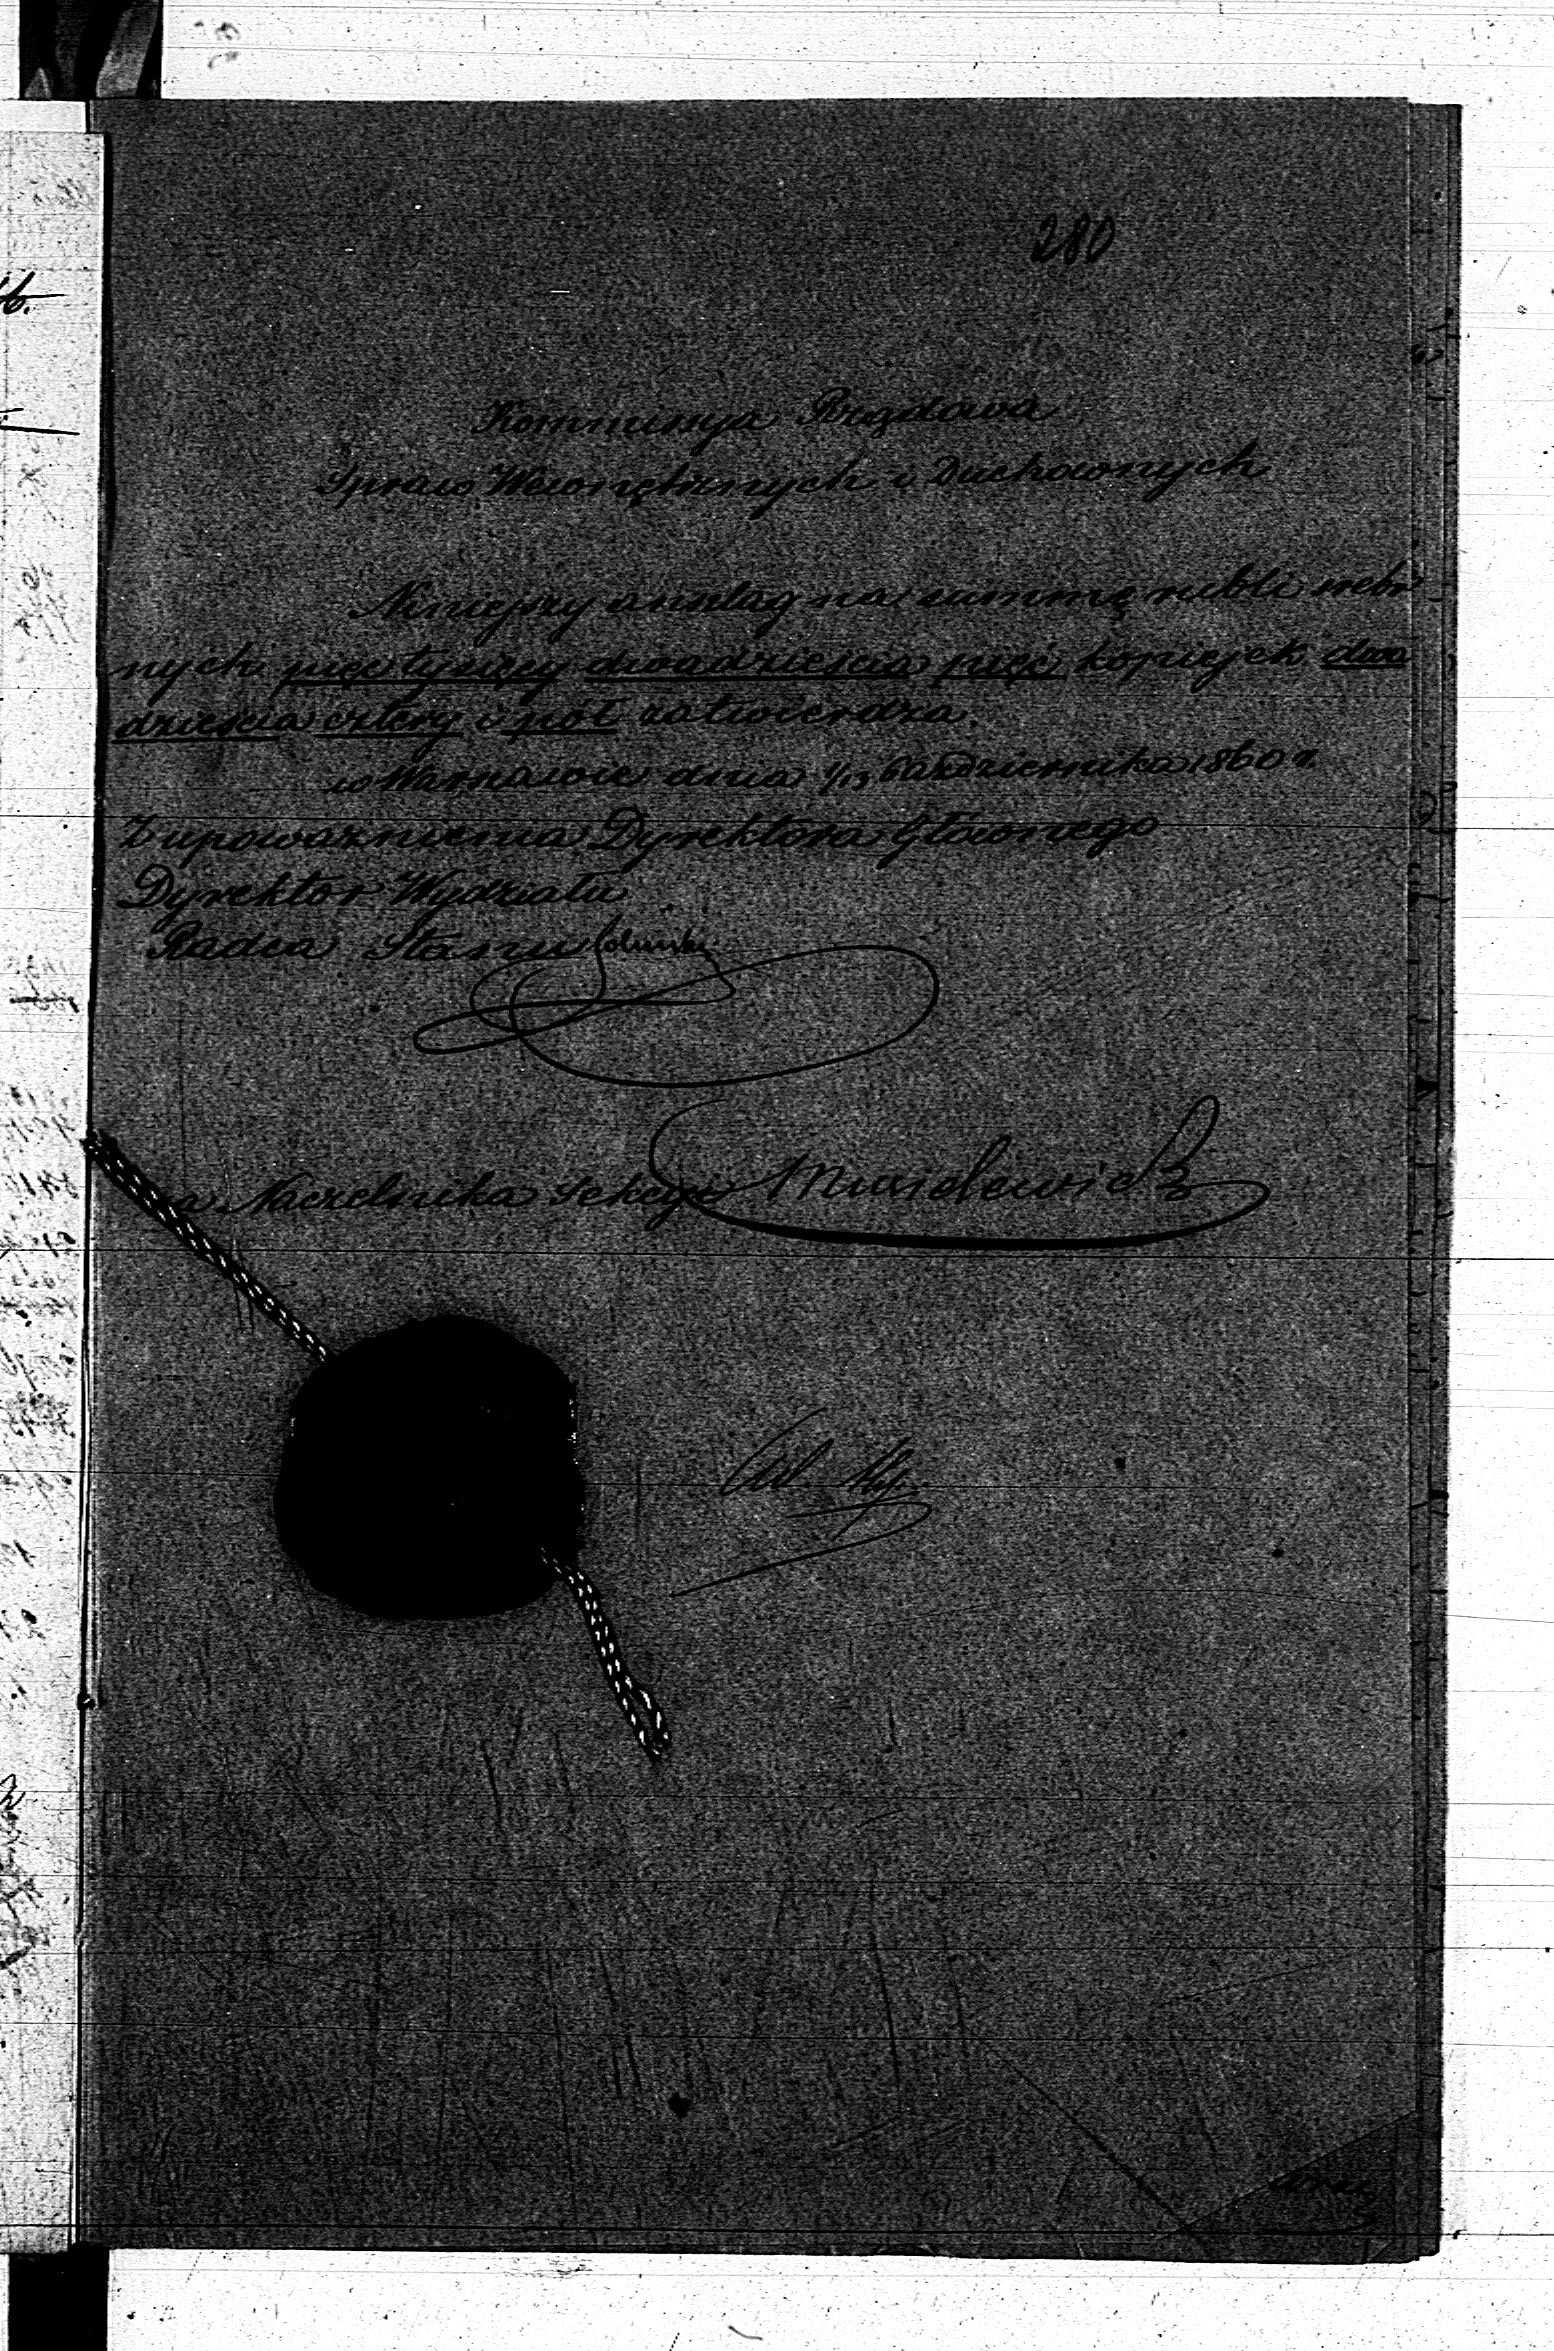 280
Kommissya Rządowa
Spraw Wewnętrznych i Duchownych
Niniejszy anszlag na summę rubli srebr
nych pięć tysięcy dwadzieścia pięć kopiejek dwa
dzieścia cztery i pół zatwierdza.
w Warszawie dnia 1/13 Października 1860 r.
Z upoważnienia Dyrektora Głównego
Dyrektor Wydziału
Radca Stanu
Naczelnika Sekcyi